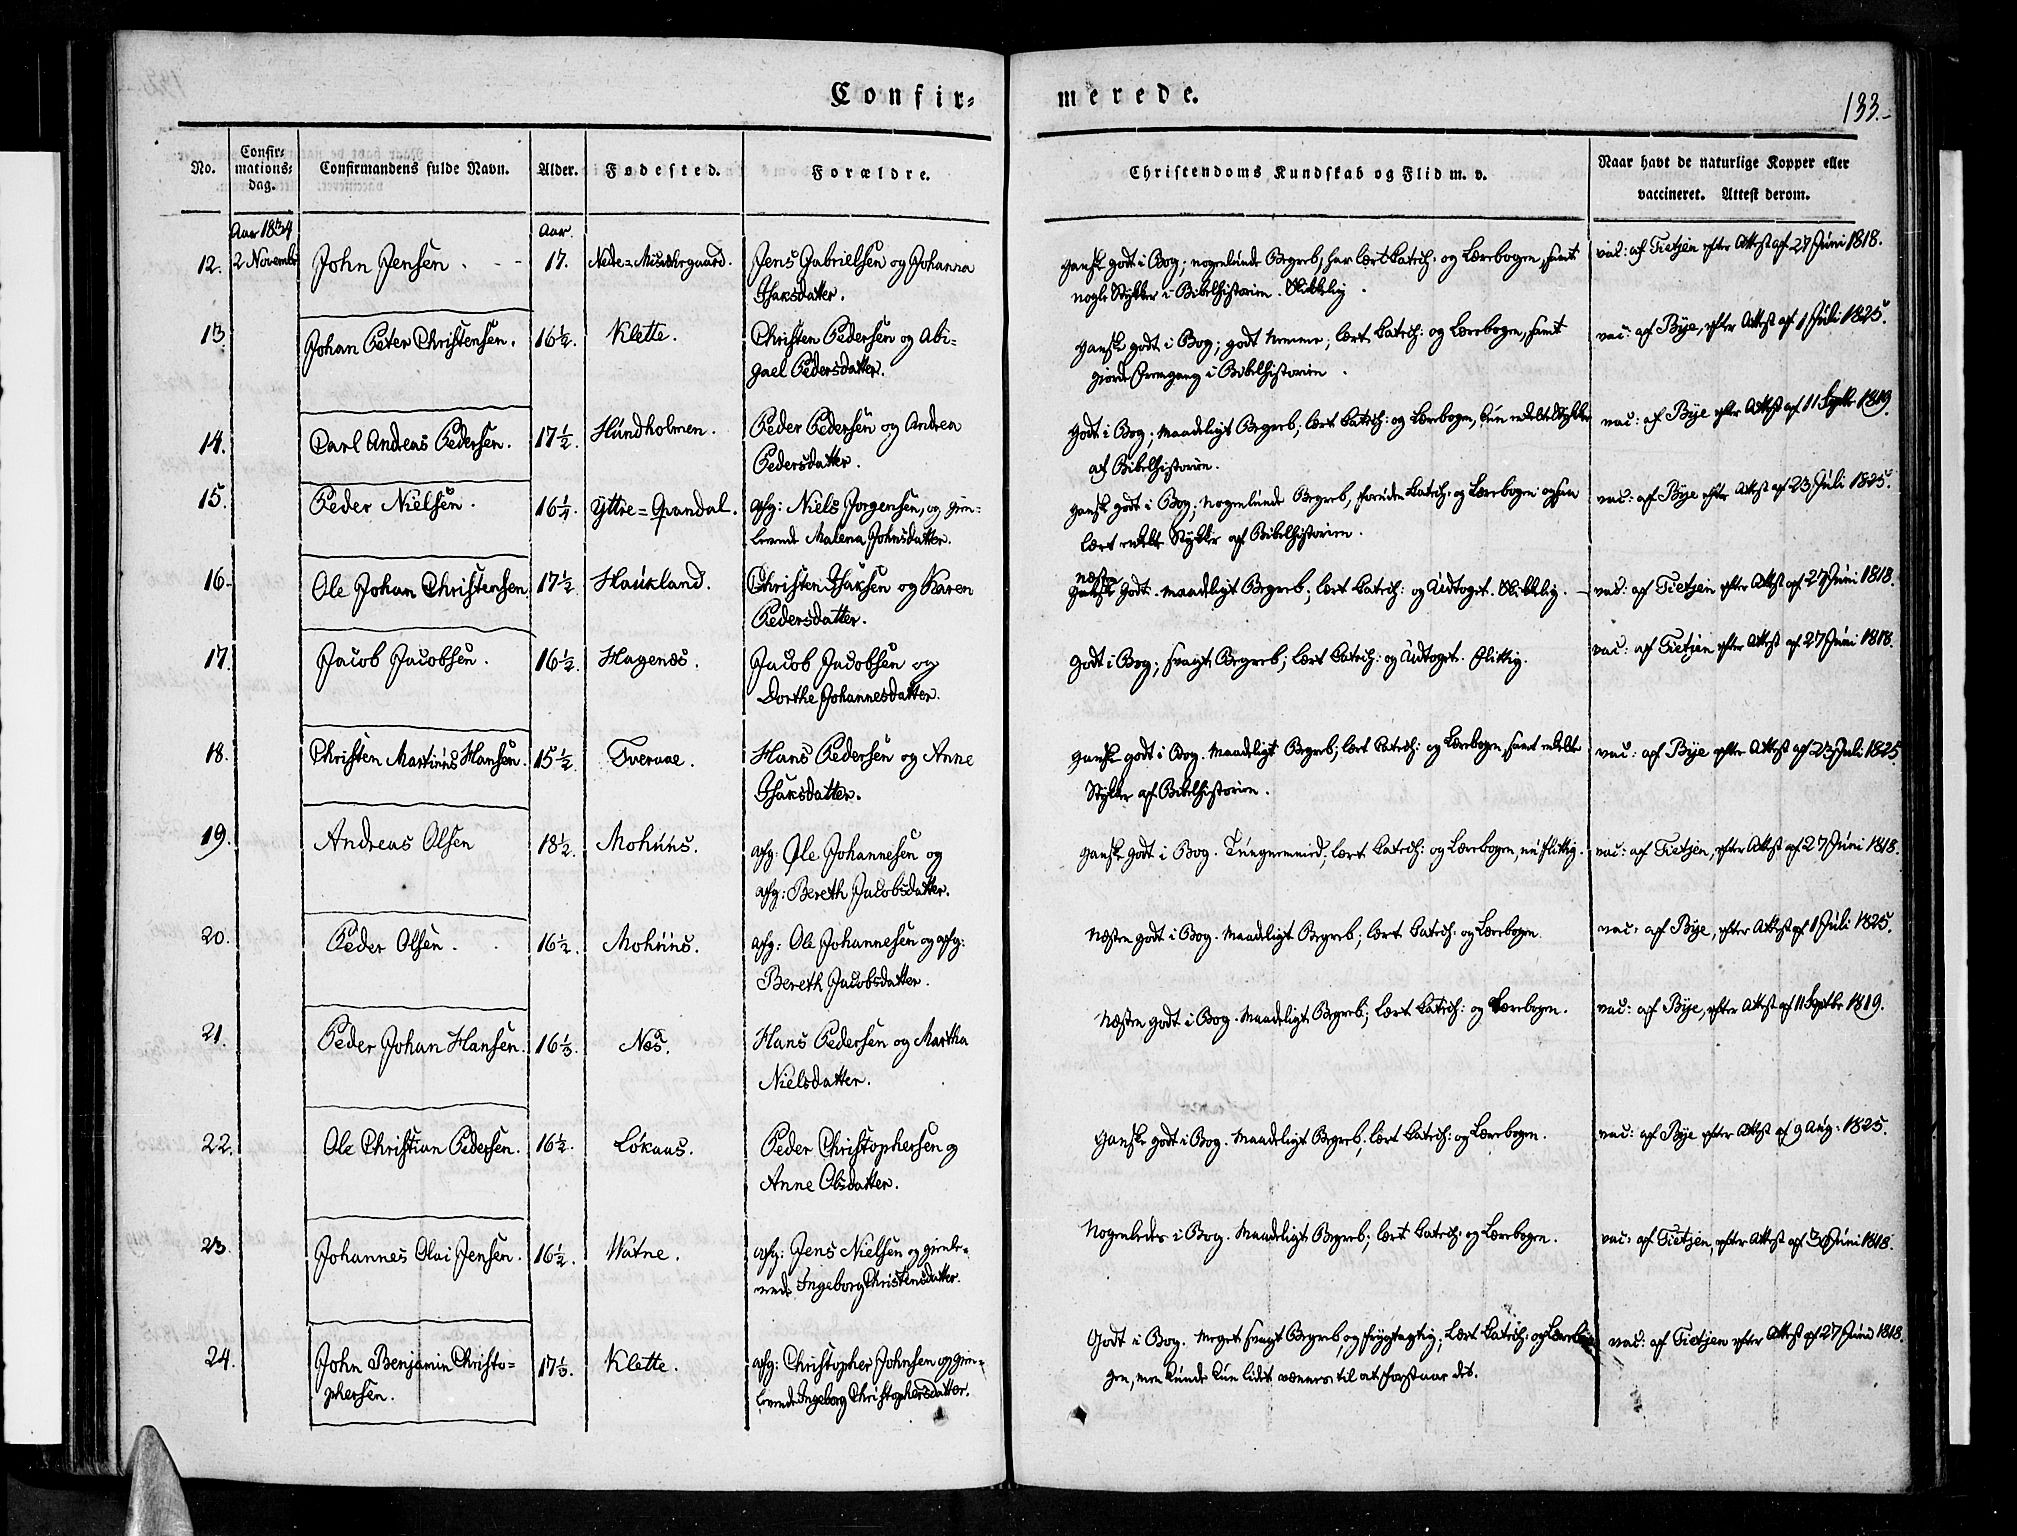 Confir-
merede.
133.
No.
Confir-
mations-
dag.
Confirmandens fulde Navn.
Alder.
Fødested.
Forældre.
Christendoms Kundskab og Flid m. v.
Naar havt de naturlige Kopper eller
vaccineret. Attest derom.
Aar 1834
Aar.
12. 2 Novembr John Jensen. 17. Jens Gabrielsen og Johanna
Isaksdatter.
Ganske godt i Bog; nogenlunde Begreb, har lært Catech: og Lærebogen, samt
nogle Stykker i Bibelhistorien. Skikkelig.
vac: af Tietjen efter Attest af 27 Juni 1818.
13. Johan Peter Christensen. 16½. Klette. Christen Pedersen og Abi-
gael Pedersdatter.
Ganske godt i Bog; godt Nemme; lært Catech: og Lærebogen, samt
giorde Fremgang i Bibelhistorien.
vac: af Bye, efter Attest af 1 Juli 1825.
14. Carl Andreas Pedersen. 17½. Hundholmen. Peder Pedersen og Andrea
Pedersdatter.
Godt i Bog; maadeligt Begreb; lært Catech: og Lærebogen, kun enkelte Stykker
af Bibelhistorien.
vac: af Bye efter Attest af 11 Septbr 1819.
15. Peder Nielsen. 16¼. Yttre-Grandal. afg: Niels Jorgensen, og gien-
levende Malena Johnsdatter.
Ganske godt i Bog; nogenlunde Begreb, foruden Catech: og Lærebogen ogsaa
lært enkelte Stykker af Bibelhistorien.
vac: af Bye efter Attest af 23 Juli 1825.
16. Ole Johan Christensen 17½. Haukland. Christen Isaksen og Karen
Pedersdatter.
næsten
Ganske godt. maadeligt Begreb; lært Catech: og Udtoget. Skikkelig.
vac: af Tietjen efter Attest af 27 Juni 1818.
17. Jacob Jacobsen. 16½. Hagenæs. Jacob Jacobsen og
Dorthe Johannesdatter.
Godt i Bog; svagt Begreb; lært Catech: og Udtoget. flittig.
vac: af Tietjen efter Attest af 27 Juni 1818.
18. Christen Martinus Hansen. 15½. Tveraae. Hans Pedersen og Anne
Isaksdatter.
Ganske godt i Bog. Maadeligt Begreb; lært Catech: og Lærebogen, samt enkelte
Stykker af Bibelhistorien.
vac: af Bye efter Attest af 23 Juli 1825.
19. Andreas Olsen 18½. Mohuus. afg: Ole Johannesen og
afg: Bereth Jacobsdatter.
Ganske godt i Bog. lært Catech: og Lærebogen, flittig.
vac: af Tietjen, efter Attest af 27 Juni 1818.
20. Peder Olsen. 16½. Mohuus. afg: Ole Johannesen og afg:
Bereth Jacobsdatter.
Næsten godt i Bog. Maadeligt Begreb; lært Catech: og Lærebogen.
vac: af Bye, efter Attest af 1 Juli 1825.
21. Peder Johan Hansen. 16⅓. Næs. Hans Pedersen og Martha
Nielsdatter.
Næsten godt i Bog. Maadeligt Begreb; lært Catech: og Lærebogen.
vac: af Bye, efter Attest af 11 Septbr 1819.
22. Ole Christian Pedersen. 16½. Løkaas. Peder Christophersen og
Anne Olsdatter.
Ganske godt i Bog. Maadeligt Begreb, lært Catech: og Lærebogen.
vac: af Bye efter Attest af 9 Aug: 1825.
23. Johannes Olai Jensen. 16½. Watne. afg: Jens Nielsen og gienle-
vende Ingeborg Christensdatter.
Nogenledes i Bog. Maadeligt Begreb; lært Catech: og Lærebogen.
vac: af Tietjen, efter Attest af 30 Juni 1818.
24. John Benjamin Christo-
phersen. 17⅓. Klette. afg: Christopher Johnsen og gien-
levende Ingeborg Christophersdatter.
Godt i Bog. Meget svagt Begreb, og frygtagtig; lært Catech: og Læreb-
gen, men kunde kun lidet vænnes til at forstaae det.
vac: af Tietjen efter Attest af 27 Juni 1818.